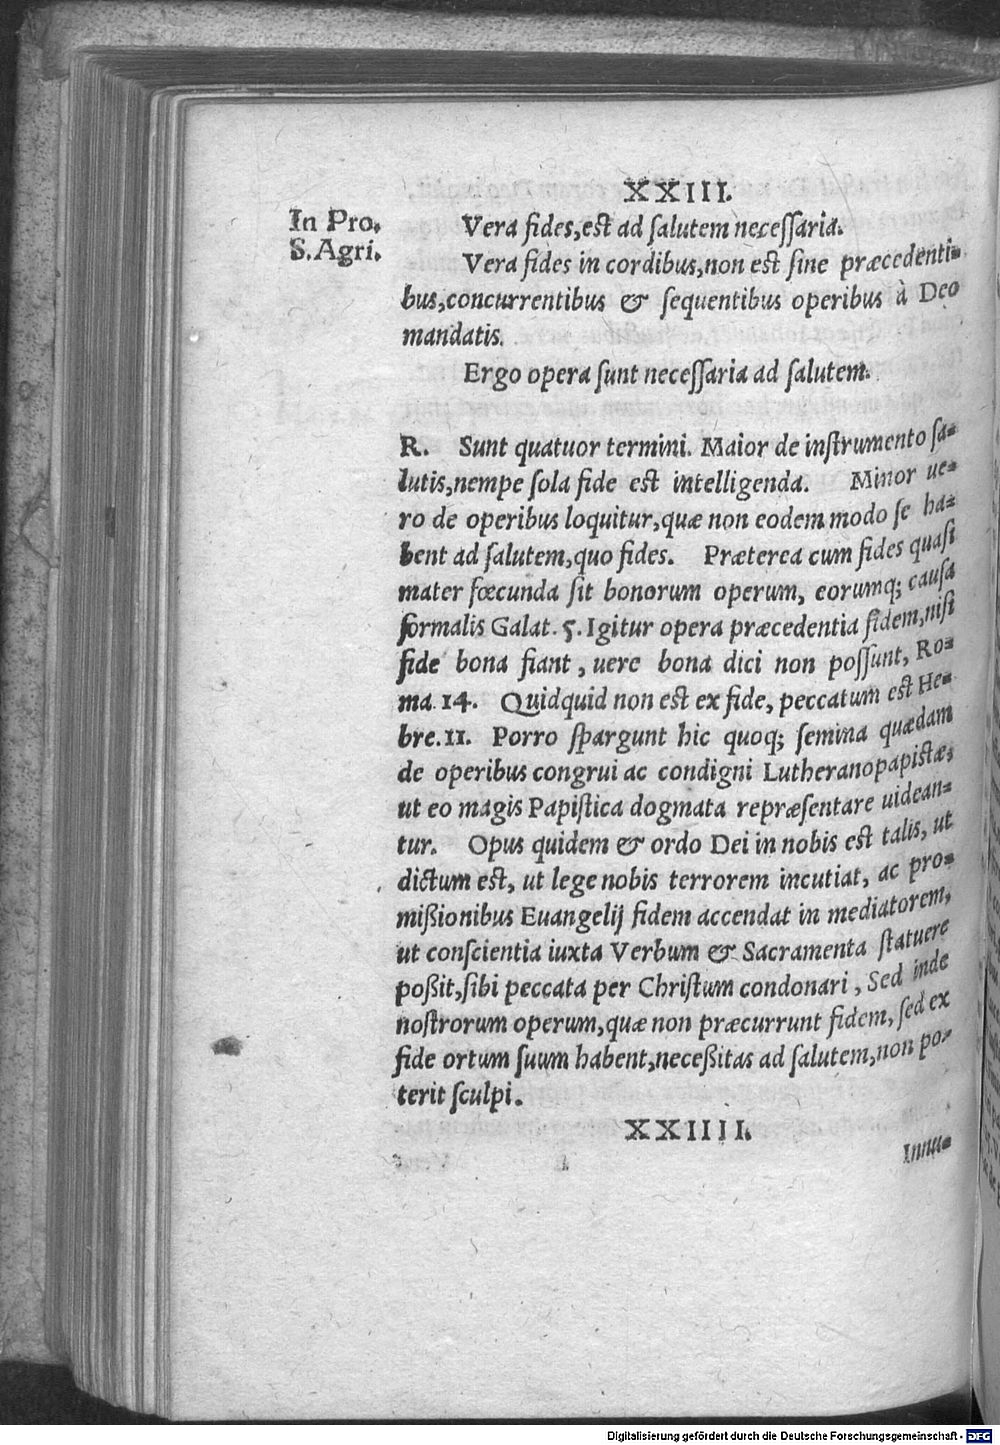 XXIII.
In Pro.
S. Agri.
Vera fides, est ad salutem necessaria.
Vera fides in cordibus, non est sine præcedenti-
bus, concurrentibus & sequentibus operibus à Deo
mandatis.
Ergo opera sunt necessaria ad salutem.
R. Sunt quatuor termini. Maior de instrumento sa-
lutis, nempe sola fide est intelligenda. Minor ue-
ro de operibus loquitur, quæ non eodem modo se ha-
bent ad salutem, quo fides. Præterea cum fides quasi
mater fœcunda sit bonorum operum, eorumq; causa
formalis Galat. 5. Igitur opera præcedentia fidem, nisi
fide bona fiant, uere bona dici non possunt, Ro-
ma. 14. Quidquid non est ex fide, peccatum est He-
bre. 11. Porro spargunt hic quoq; semina quædam
de operibus congrui ac condigni Lutheranopapistæ,
ut eo magis Papistica dogmata repræsentare uidean-
tur. Opus quidem & ordo Dei in nobis est talis, ut
dictum est, ut lege nobis terrorem incutiat, ac pro-
mißionibus Euangelij fidem accendat in mediatorem,
ut conscientia iuxta Verbum & Sacramenta statuere
poßit, sibi peccata per Christum condonari, Sed inde
nostrorum operum, quæ non præcurrunt fidem, sed ex
fide ortum suum habent, neceßitas ad salutem, non po-
terit sculpi.
XXIIII.
Innu-
Digitalisierung gefördert durch die Deutsche Forschungsgemeinschaft - DFG